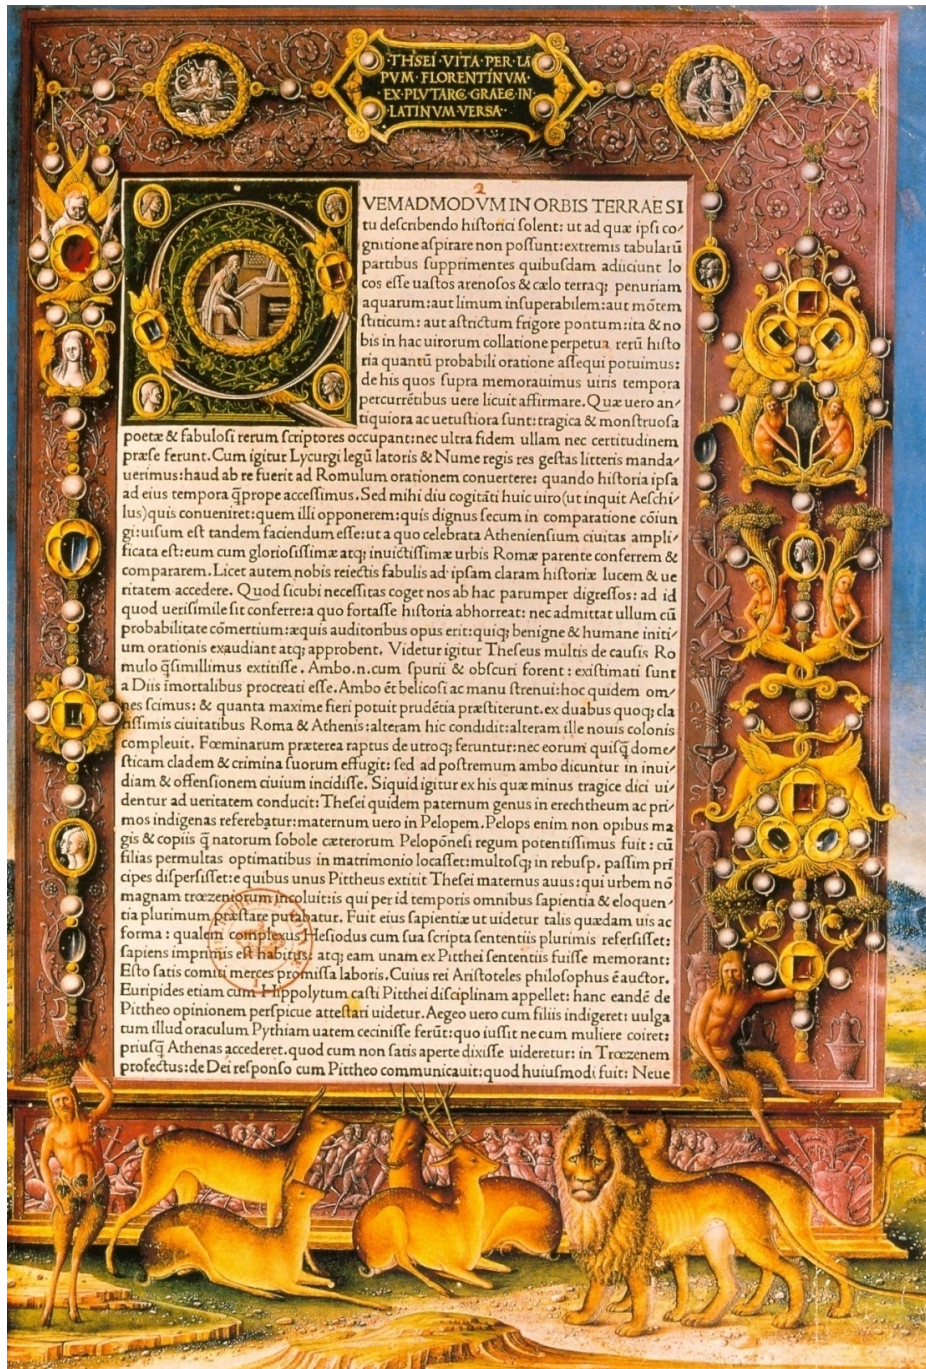 ·THSEI·VITA·PER·LA
PVM·FLORENTINVM·
EX·PLVTARC·GRAEC·IN·
·LATINVM·VERSA··
2
QVEMADMODVM IN ORBIS TERRAE SI
tu deſcribendo hiſtorici ſolent: ut ad quæ ipſi co⸗
gnitione aſpirare non poſſunt:extremis tabularū
partibus ſupprimentes quibuſdam adiiciunt lo
cos eſſe uaſtos arenoſos & cælo terraq; penuriam
aquarum:aut limum inſuperabilem:aut mōtem
ſtiticum: aut aſtrictum frigore pontum:ita & no
bis in hac uirorum collatione perpetua rerū hiſto
ria quantū probabili oratione aſſequi potuimus:
de his quos ſupra memorauimus uiris tempora
percurrētibus uere licuit affirmare. Quæ uero an⸗
tiquiora ac uetuſtiora ſunt: tragica & monſtruoſa
poetæ & fabuloſi rerum ſcriptores occupant:nec ultra fidem ullam nec certitudinem
præſe ferunt. Cum igitur Lycurgi legū latoris & Nume regis res geſtas litteris manda⸗
uerimus:haud ab re fuerit ad Romulum orationem conuertere: quando hiſtoria ipſa
ad eius tempora q̄prope acceſſimus. Sed mihi diu cogitāti huic uiro (ut inquit Aeſchi⸗
lus) quis conueniret:quem illi opponerem:quis dignus ſecum in comparatione cōiun
gi:uiſum eſt tandem faciendum eſſe:ut a quo celebrata Athenienſium ciuitas ampli⸗
ficata eſt:eum cum glorioſiſſimæ atq; inuictiſſimæ urbis Romæ parente conferrem &
compararem. Licet autem nobis reiectis fabulis ad ipſam claram hiſtoriæ lucem & ue
ritatem accedere. Quod ſicubi neceſſitas coget nos ab hac parumper digreſſos: ad id
quod ueriſimile ſit conferre:a quo fortaſſe hiſtoria abhorreat: nec admittat ullum cū
probabilitate cōmertium:æquis auditoribus opus erit:quiq; benigne & humane initi⸗
um orationis exaudiant atq; approbent. Videtur igitur Theſeus multis de cauſis Ro
mulo q̄ſimillimus extitiſſe. Ambo.n.cum ſpurii & obſcuri forent: exiſtimati ſunt
a Diis īmortalibus procreati eſſe. Ambo ēt belicoſi ac manu ſtrenui:hoc quidem om⸗
nes ſcimus: & quanta maxime fieri potuit prudētia præſtiterunt. ex duabus quoq; cla
riſſimis ciuitatibus Roma & Athenis:alteram hic condidit:alteram ille nouis colonis
compleuit. Fœminarum præterea raptus de utroq; feruntur:nec eorum quiſq̄ dome⸗
ſticam cladem & crimina ſuorum effugit: ſed ad poſtremum ambo dicuntur in inui⸗
diam & offenſionem ciuium incidiſſe. Siquid igitur ex his quæ minus tragice dici ui⸗
dentur ad ueritatem conducit: Theſei quidem paternum genus in erechtheum ac pri⸗
mos indigenas referebatur:maternum uero in Pelopem. Pelops enim non opibus ma
gis & copiis q̄ natorum ſobole cæterorum Pelopōneſi regum potentiſſimus fuit: cū
filias permultas optimatibus in matrimonio locaſſet:multoſq; in rebuſp. paſſim prī
cipes diſperſiſſet:e quibus unus Pittheus extitit Theſei maternus auus:qui urbem nō
magnam trœzeniorum incoluit:is qui per id temporis omnibus ſapientia & eloquen⸗
tia plurimum præſtare putabatur. Fuit eius ſapientiæ ut uidetur talis quædam uis ac
forma: qualem complexus Heſiodus cum ſua ſcripta ſententiis plurimis referſiſſet:
ſapiens imprimis eſt habitus. atq; eam unam ex Pitthei ſententiis fuiſſe memorant:
Eſto ſatis comiti merces promiſſa laboris. Cuius rei Ariſtoteles philoſophus ē auctor.
Euripides etiam cum Hippolytum caſti Pitthei diſciplinam appellet: hanc eandē de
Pittheo opinionem perſpicue atteſtari uidetur. Aegeo uero cum filiis indigeret: uulga
tum illud oraculum Pythiam uatem ceciniſſe ferūt: quo iuſſit ne cum muliere coiret:
priuſq̄ Athenas accederet. quod cum non ſatis aperte dixiſſe uideretur: in Trœzenem
profectus:de Dei reſponſo cum Pittheo communicauit:quod huiuſmodi fuit: Neue